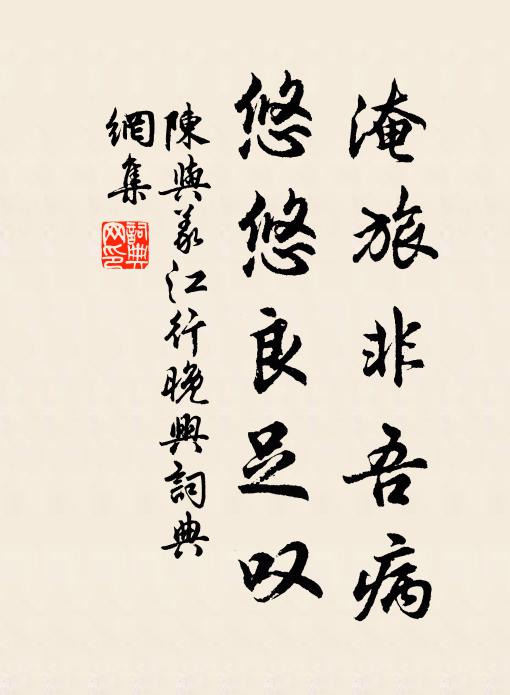 淹旅非吾病
悠悠良足叹
陳與義江行晚興詞典
網集
詞典
网印